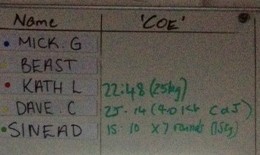 Name 'COE'
MICK. G
BEAST
KATH L 22:48 (25kg)
DAVE C 25.14
SINEAD 15 10 x 7 rounds (15kg)